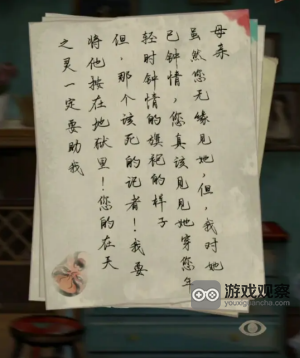 母亲
虽然您无缘见她，但，我对她
已钟情，您真该见见她穿您年
轻时钟情的旗袍的样子
但，那个该死的记者！我要
将他按在地狱里！您的在天
之灵一定要助我
游戏观察
youxiguancha.com